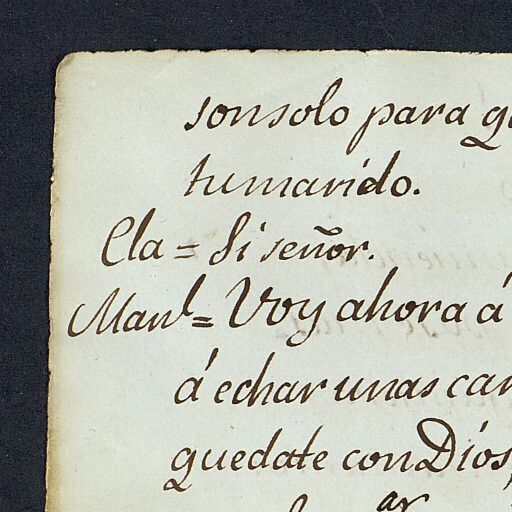 son solo para
tu marido.
Cla = Si señor.
Man.l = Voy ahora á
á echar unas
quedate con Dios,